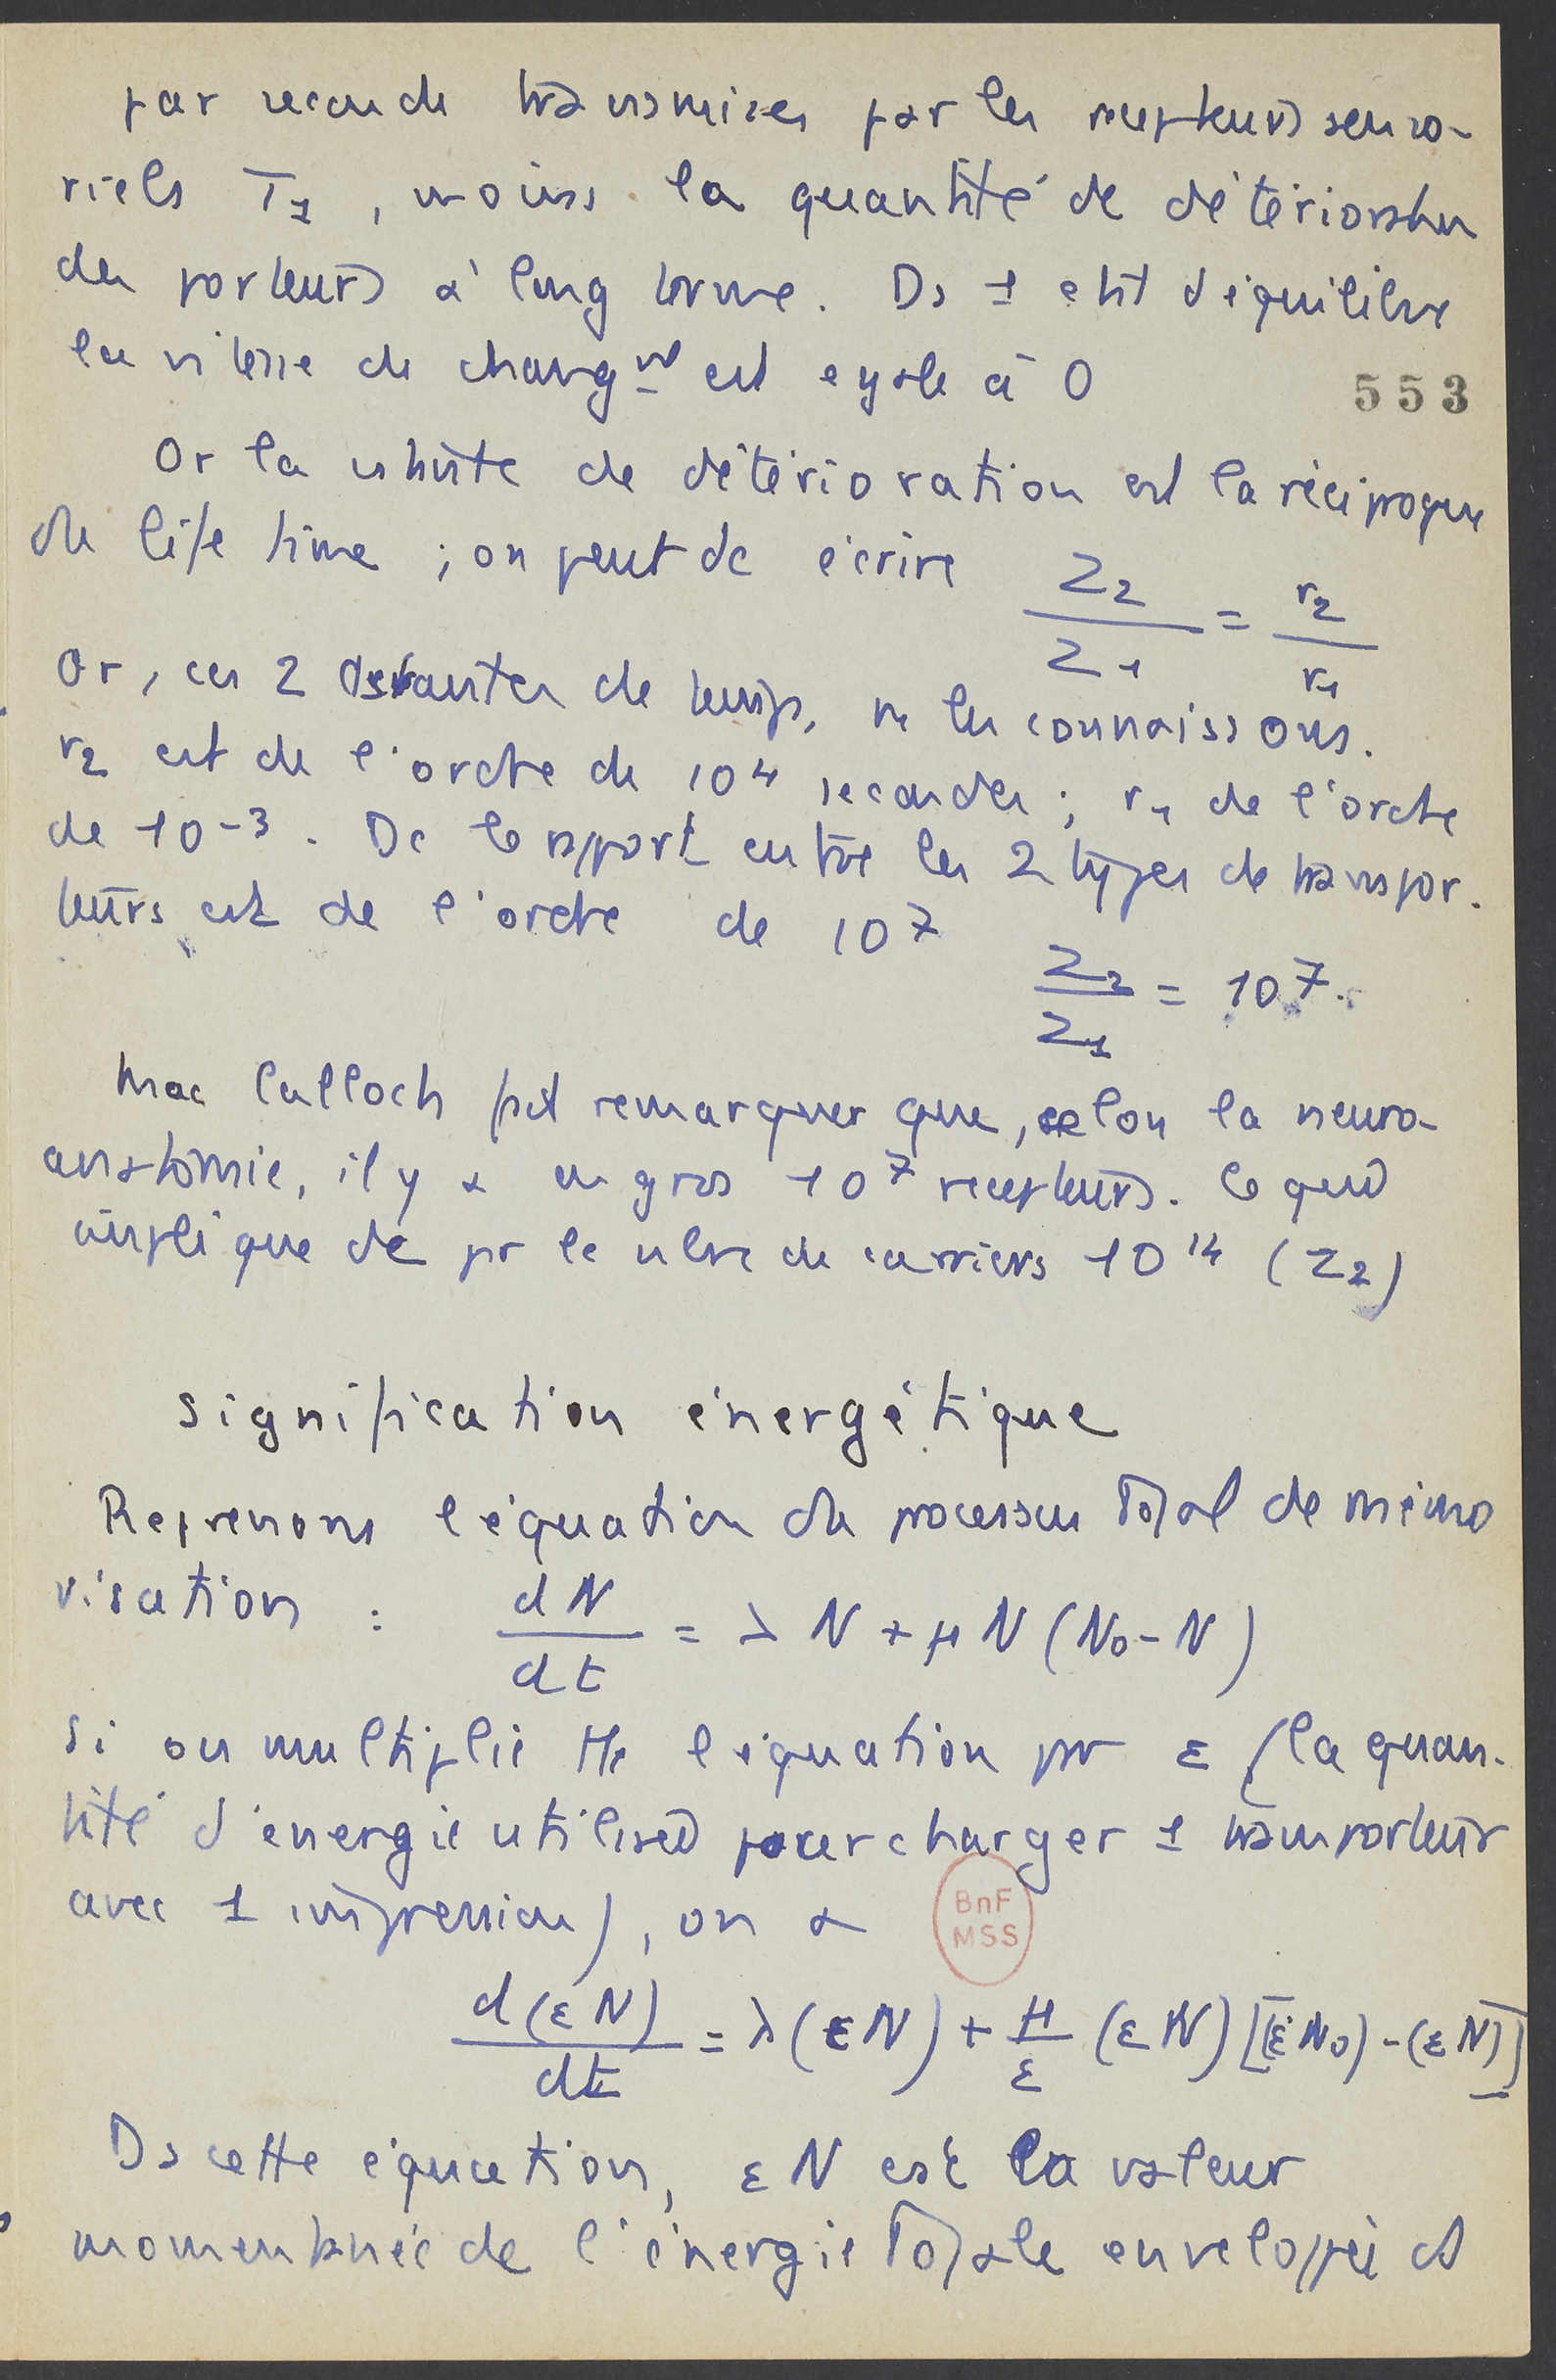 par seconde transmises par les recepteurs senso-
riels T1, moins la quantité de détérioration
des porteurs à long terme. Ds 1 etat d'équilibre
la vitesse de changnt est egale à 0
553
Or la de détérioration est la réciproque
du life time ; on peut dc écrire Z2/Z1 = r2/r1
Or, ces 2 constantes de temps, ns les connaissons.
r2 est de l'ordre de 10^4 secondes ; r1 de l'ordre
de 10^-3. Dc le rapport entre les 2 types de transpor-
teurs est de l'ordre de 10^7
Z2/Z1 = 10^7.
Mac Culloch fait remarquer que, selon la neuro-
anatomie, il y a en gros 10^7 recepteurs. Ce qui
implique dc pr le nbre de carriers 10^14 (Z2)
Signification énergétique
Reprenons l'équation du processus total de mémo
risation : dN/dt = λN + μN(N0 - N)
Si on multiplie tte l'équation pr ε (la quan-
tité d'énergie utilisée pour charger 1 transporteur
avec 1 impression), on a
BnF
MSS
d(εN)/dt = λ(εN) + μ/ε (εN)[(εN0) - (εN)]
Ds cette équation, εN est la valeur
momentanée de l'énergie totale enveloppée ds